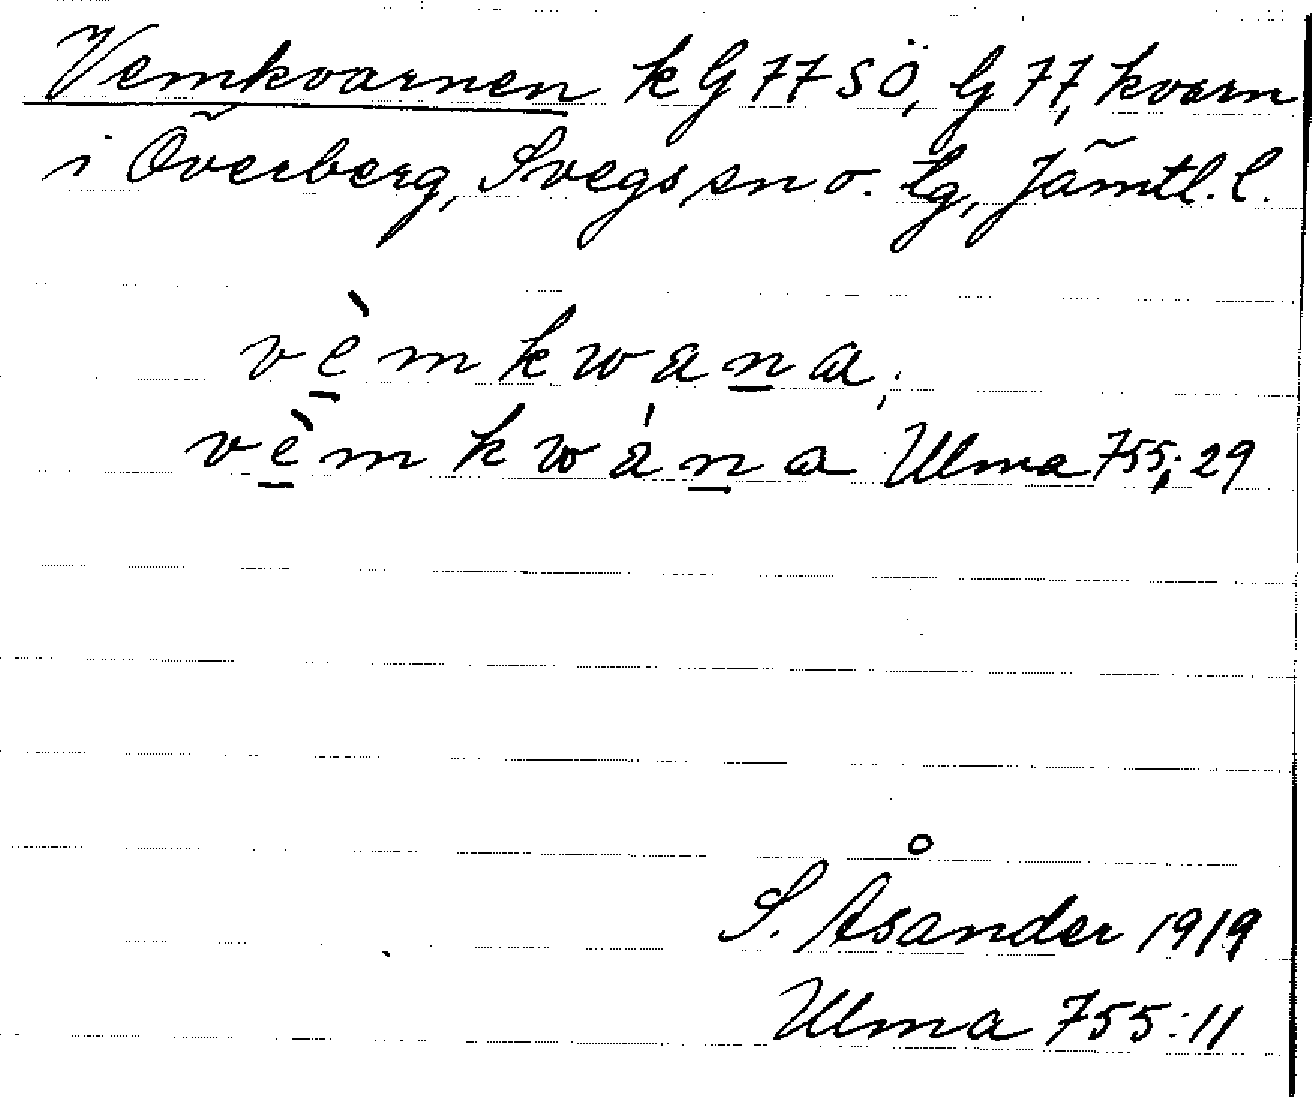 Vemkvarnen k G 77 SÖ, G 77, kvarn
i Överberg, Svegs sn o. tg, Jämtl. l.
vèmkwana;
vèmkwána Ulma 755:29
S. Åsander 1919
Ulma 755:11